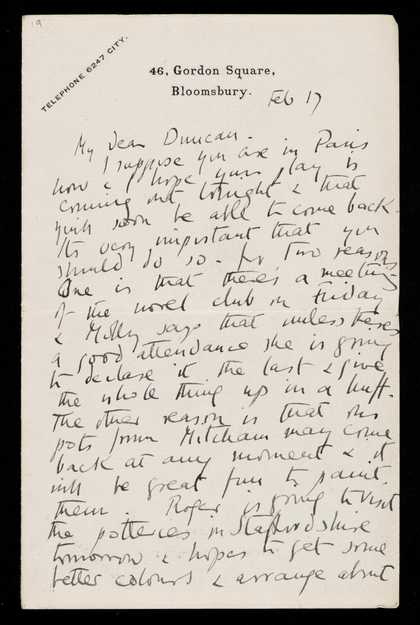 19
TELEPHONE 6247 CITY.
46, Gordon Square,
Bloomsbury.
Feb 17
My dear Duncan.
I suppose you are in Paris
now & I hope your play is
coming out tonight & that
you'll soon be able to come back.
Its very important that you
should do so. for two reasons
One is that there's a meeting
of the novel club on Friday
& Molly says that unless there's
a good attendance she is going
to declare it the last & give
the whole thing up in a huff.
The other reason is that our
pots from Mitcham may come
back at any moment & it
will be great fun to paint
them. Roger is going to visit
the potteries in Staffordshire
tomorrow & hopes to get some
better colours & arrange about